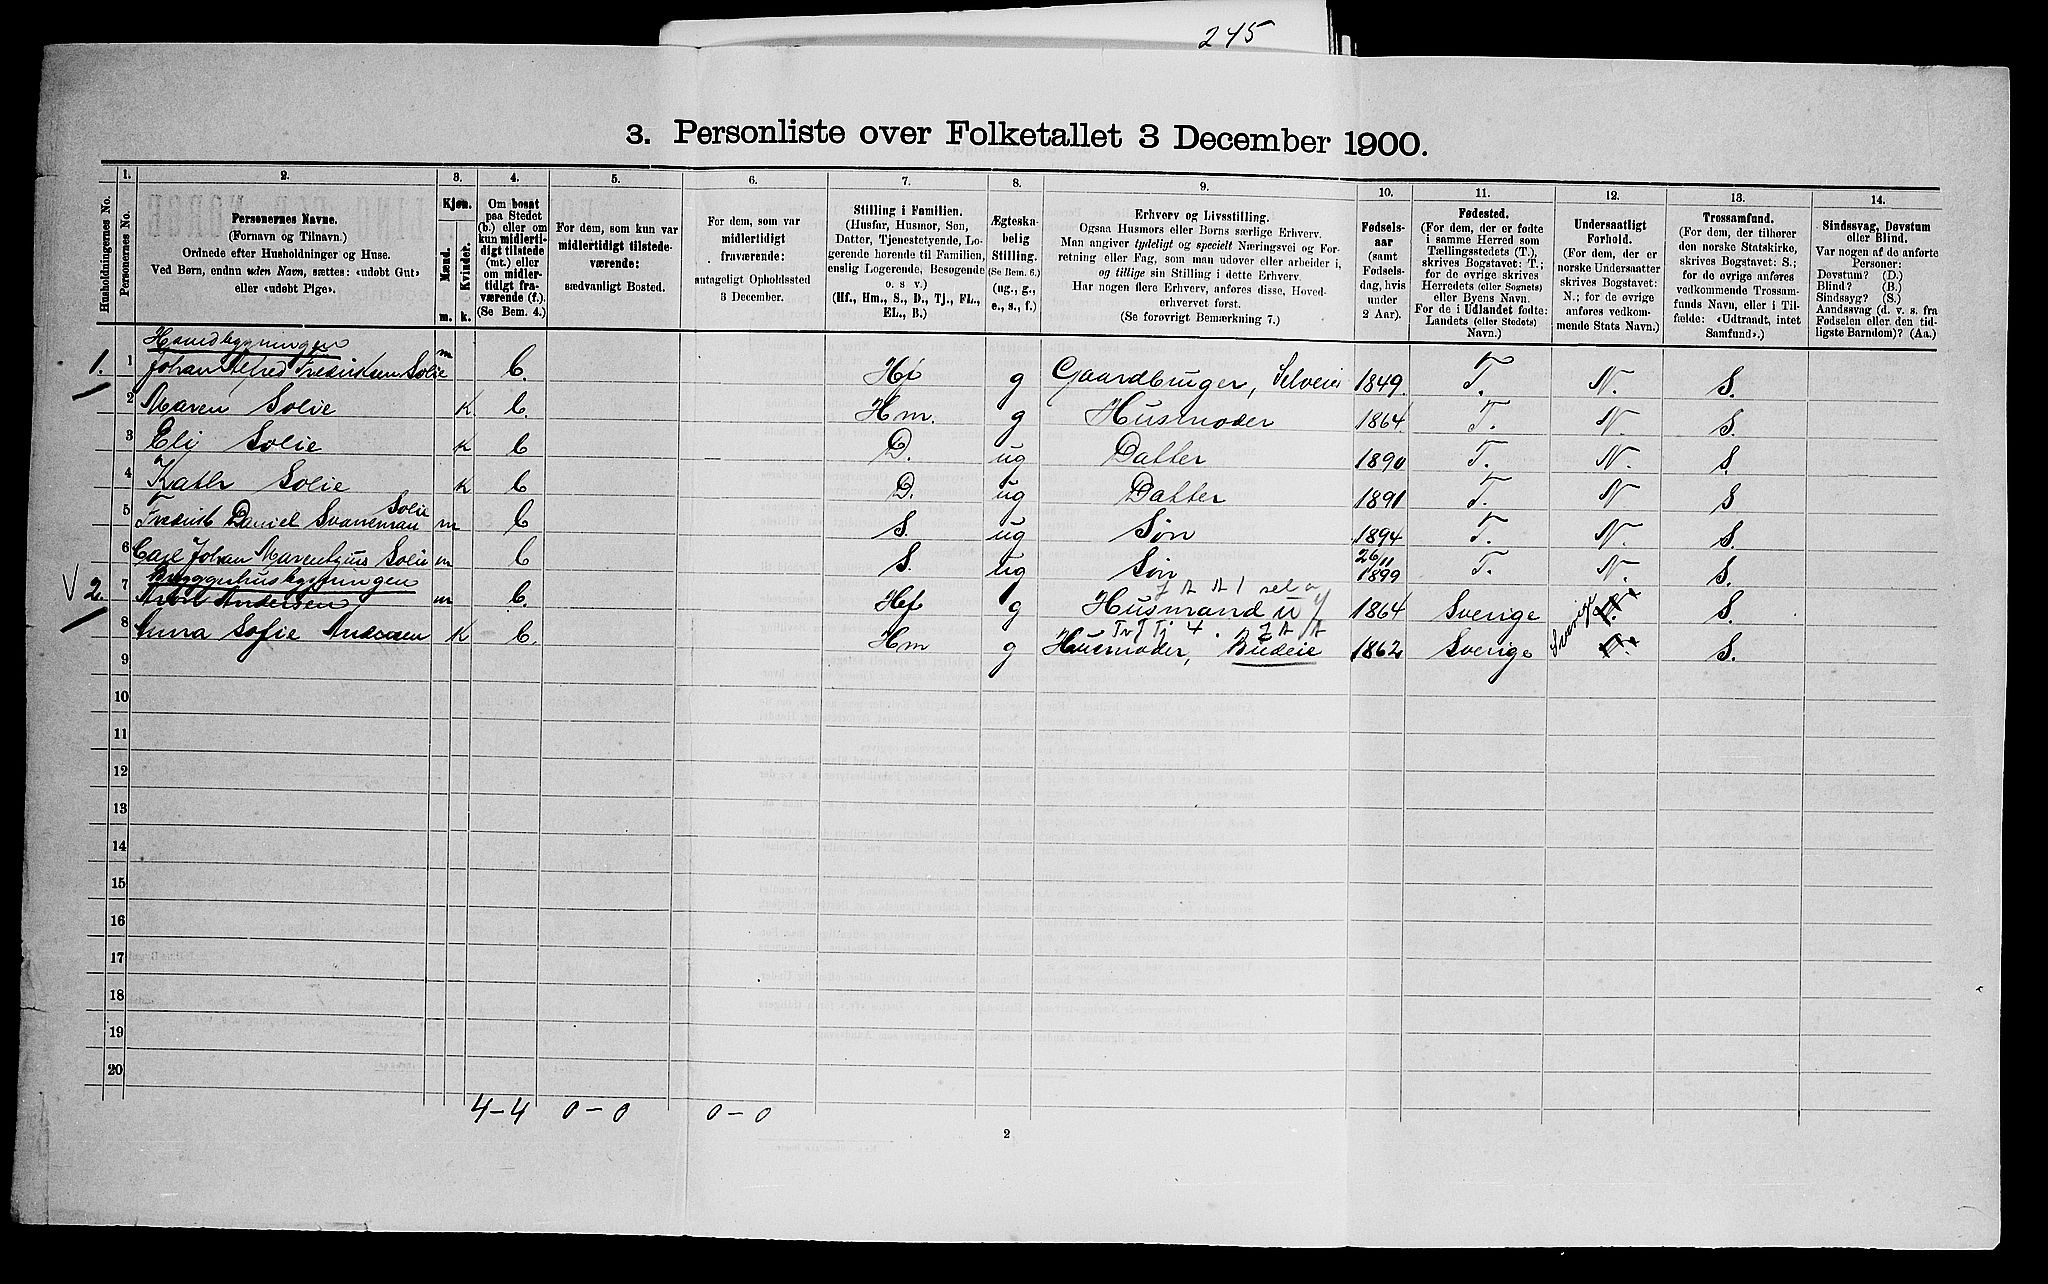 245
3. Personliste over Folketallet 3 December 1900.
Husholdningernes No.
1.
Personernes No.
2.
Personernes Navne.
(Fornavn og Tilnavn.)
Ordnede efter Husholdninger og Huse.
Ved Børn, endnu uden Navn, sættes: «udøbt Gut»
eller «udøbt Pige».
3.
Kjøn.
Mænd.
m.
Kvinder.
k.
4.
Om bosat
paa Stedet
(b.) eller om
kun midlerti-
digt tilstede
(mt.) eller
om midler-
tidigt fra-
værende (f.).
(Se Bem. 4.)
5.
For dem, som kun var
midlertidigt tilstede-
værende:
sædvanligt Bosted.
6.
For dem, som var
midlertidigt
fraværende:
antageligt Opholdssted
3 December.
7.
Stilling i Familien.
(Husfar, Husmor, Søn,
Datter, Tjenestetyende, Lo-
gerende hørende til Familien,
enslig Logerende, Besøgende
o. s v.)
(Hf., Hm., S., D., Tj., FL.,
EL., B.)
8.
Ægteska-
belig
Stilling.
(Se Bem. 6.)
(ug., g.,
e., s., f.)
9.
Erhverv og Livsstilling.
Ogsaa Husmors eller Børns særlige Erhverv.
Man angiver tydeligt og specielt Næringsvei og For-
retning eller Fag, som man udover eller arbeider i,
og tillige sin Stilling i dette Erhverv.
Har nogen flere Erhverv, anføres disse, Hoved-
erhvervet først.
(Se forøvrigt Bemærkning 7.)
10.
Fødsels-
aar
(samt
Fødsels-
dag, hvis
under
2 Aar).
11.
Fødested.
(For dem, der er fødte
i samme Herred som
Tællingsstedets (T.),
skrives Bogstavet: T.;
for de øvrige skrives
Herredets (eller Sognets)
eller Byens Navn.
For de i Udlandet fødte:
Landets (eller Stedets)
Navn.)
12.
Undersaatligt
Forhold.
(For dem, der er
norske Undersaatter
skrives Bogstavet:
N.; for de øvrige
anføres vedkom-
mende Stats Navn.)
13.
Trossamfund.
(For dem, der tilhører
den norske Statskirke,
skrives Bogstavet: S.;
for de øvrige anføres
vedkommende Trossam-
funds Navn, eller i Til-
fælde: «Udtraadt, intet
Samfund».)
14.
Sindssvag, Døvstum
eller Blind.
Var nogen af de anførte
Personer:
Døvstum? (D.)
Blind? (B.)
Sindssyg? (S.)
Aandssvag (d. v. s. fra
Fødselen eller den tid-
ligste Barndom)? (Aa.)
Hovedbygningen
1. 1 Johan Alfred Fredriksen Solie m b. Hf g Gaardbruger, Selveier 1849. T. N. S.
2 Maren Solie K b. Hm. g Husmoder 1864 T. N. S.
3 Eli Solie K b D. ug Datter 1890 T. N. S.
4 Kath Solie K b D. ug Datter 1891 T. N S
Solie
5 Fredrik Daniel Svaneman m b S. ug Søn 1894 T. N. S.
6 Carl Johan Solie m b S. ug Søn 26/11 1899 T. N. S.
Bryggerhusbygningen
V 2. 7 Andersen m b. Hf g Husmand 1864 Sverige Sverige S.
8 Anna Sofie Andersen K b. Hm g Husmoder, Budeie 1862 Sverige S.
9
10
11
12
13
14
15
16
17
18
19
20
4-4 0-0 0-0
2